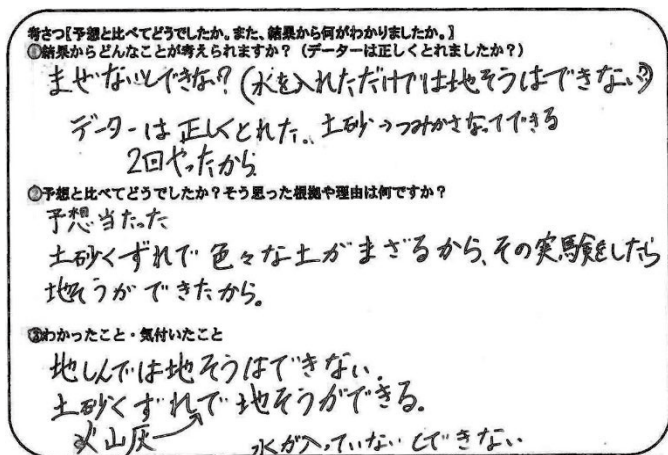 考さつ〖予想と比べてどうでしたか。また、結果から何がわかりましたか。〗
①結果からどんなことが考えられますか？（データーは正しくとれましたか？）
まぜないとできない？(水を入れただけでは地そうはできない？)
データーは正しくとれた。土砂→つみかさなってできる
2回やったから
②予想と比べてどうでしたか？そう思った根拠や理由は何ですか？
予想当たった
土砂くずれで色々な土がまざるから、その実験をしたら
地そうができたから。
③わかったこと・気付いたこと
地しんでは地そうはできない。
土砂くずれで地そうができる。
火山灰→ 水が入っていないとできない